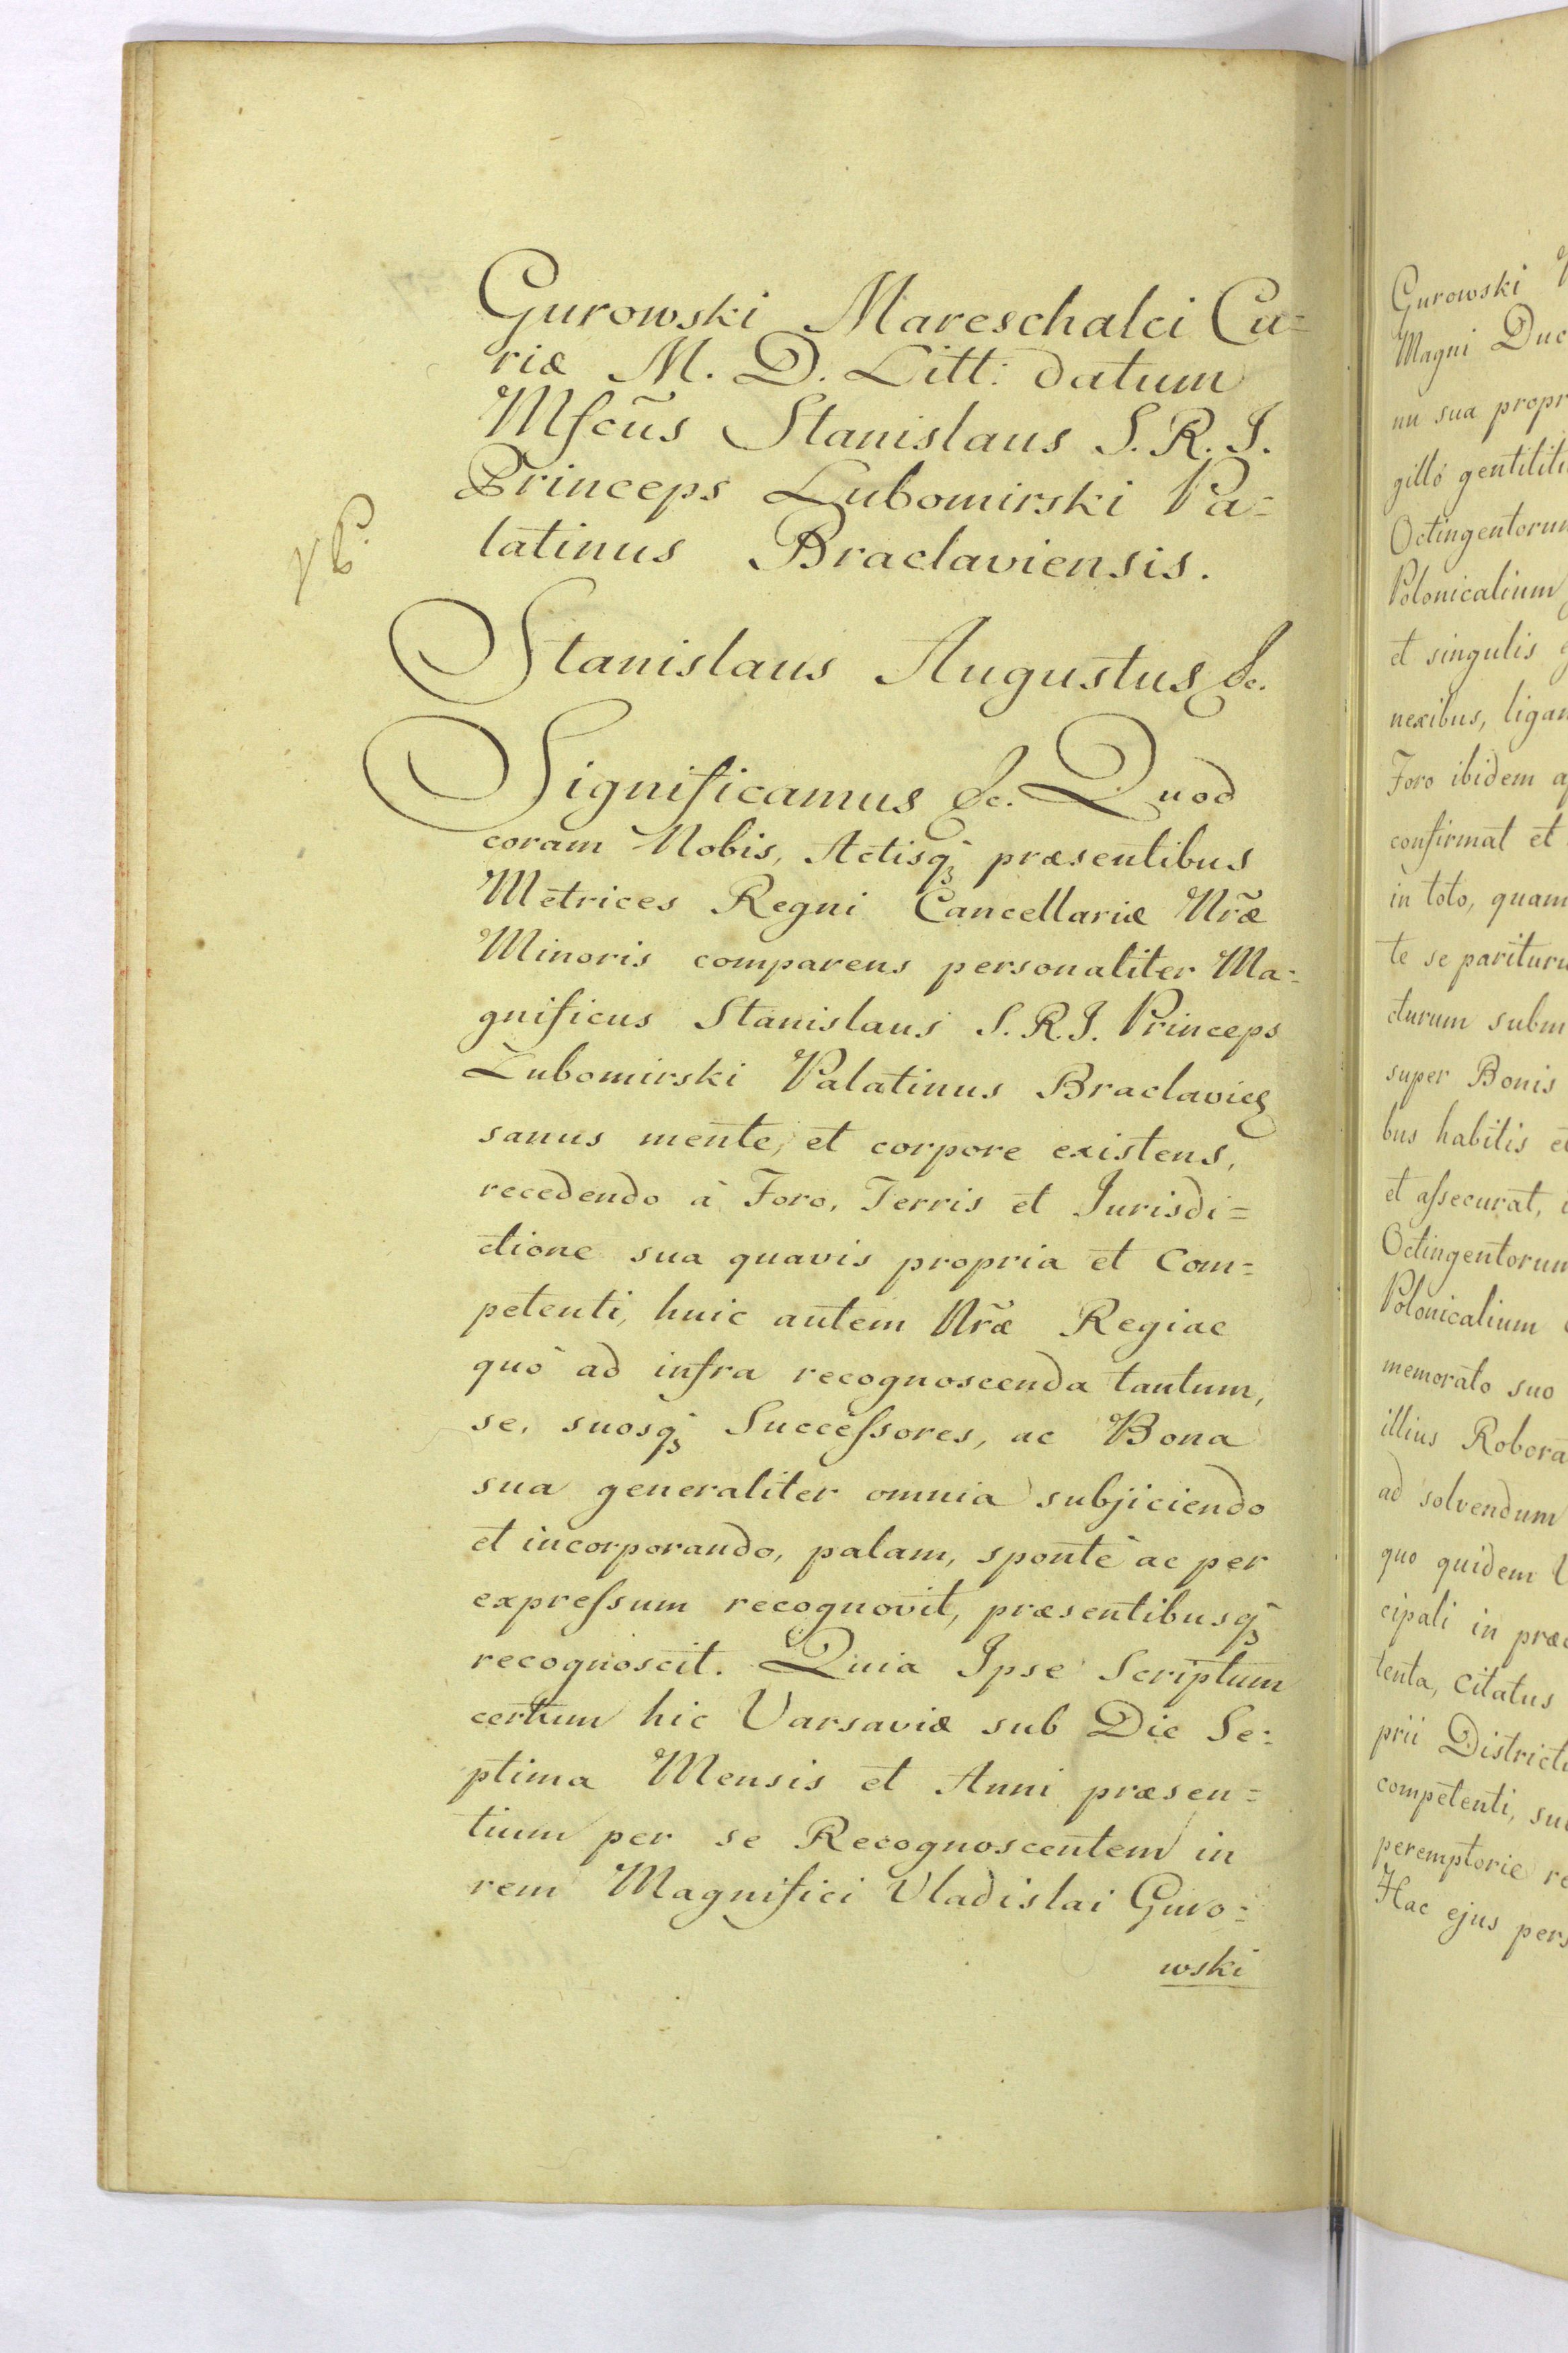 Gurowski Mareschalci Cu=
riæ M. D. Litt: datum
Mfcũs Stanislaus S. R. I.
Princeps Lubomirski Pa=
latinus Braclaviensis.
Stanislaus Augustus &c.
Significamus &c. Quod
coram Nobis, Actisqꝫ præsentibus
Metrices Regni Cancellariæ Nrãe
Minoris comparens personaliter Ma=
gnificus Stanislaus S. R. I. Princeps
Lubomirski Palatinus Braclavieꝫ
sanus mente, et corpore existens,
recedendo à Foro, Terris et Jurisdi=
ctione sua quavis propria et Com=
petenti, huic autem Nrãe Regiae
quò ad infra recognoscenda tantum,
se, suosqꝫ Succeſsores, ac Bona
sua generaliter omnia subjiciendo
et incorporando, palam, spontè ac per
expreſsum recognovit, præsentibusqꝫ
recognoscit. Quia Ipse Scriptum
certum hic Varsaviæ sub Die Se=
ptima Mensis et Anni præsen=
tium per se Recognoscentem in
rem Magnifici Vladislai Guro=
wski
Gurowski
Magni Duc
nu sua propr
gillô gentiliti
Octingentorum
Polonicalium
et singulis
nexibus, ligam
Foro ibidem a
confirmat et
in toto, quam
te se pariturum
cturum subm
super Bonis
bus habitis et
et aſsecurat,
Octingentorum
Polonicalium
memorato suo
illius Robora
ad solvendum
quo quidem
cipali in præ
tenta, citatus
prii Districtu
competenti, su
peremptorie re
Hac ejus pers